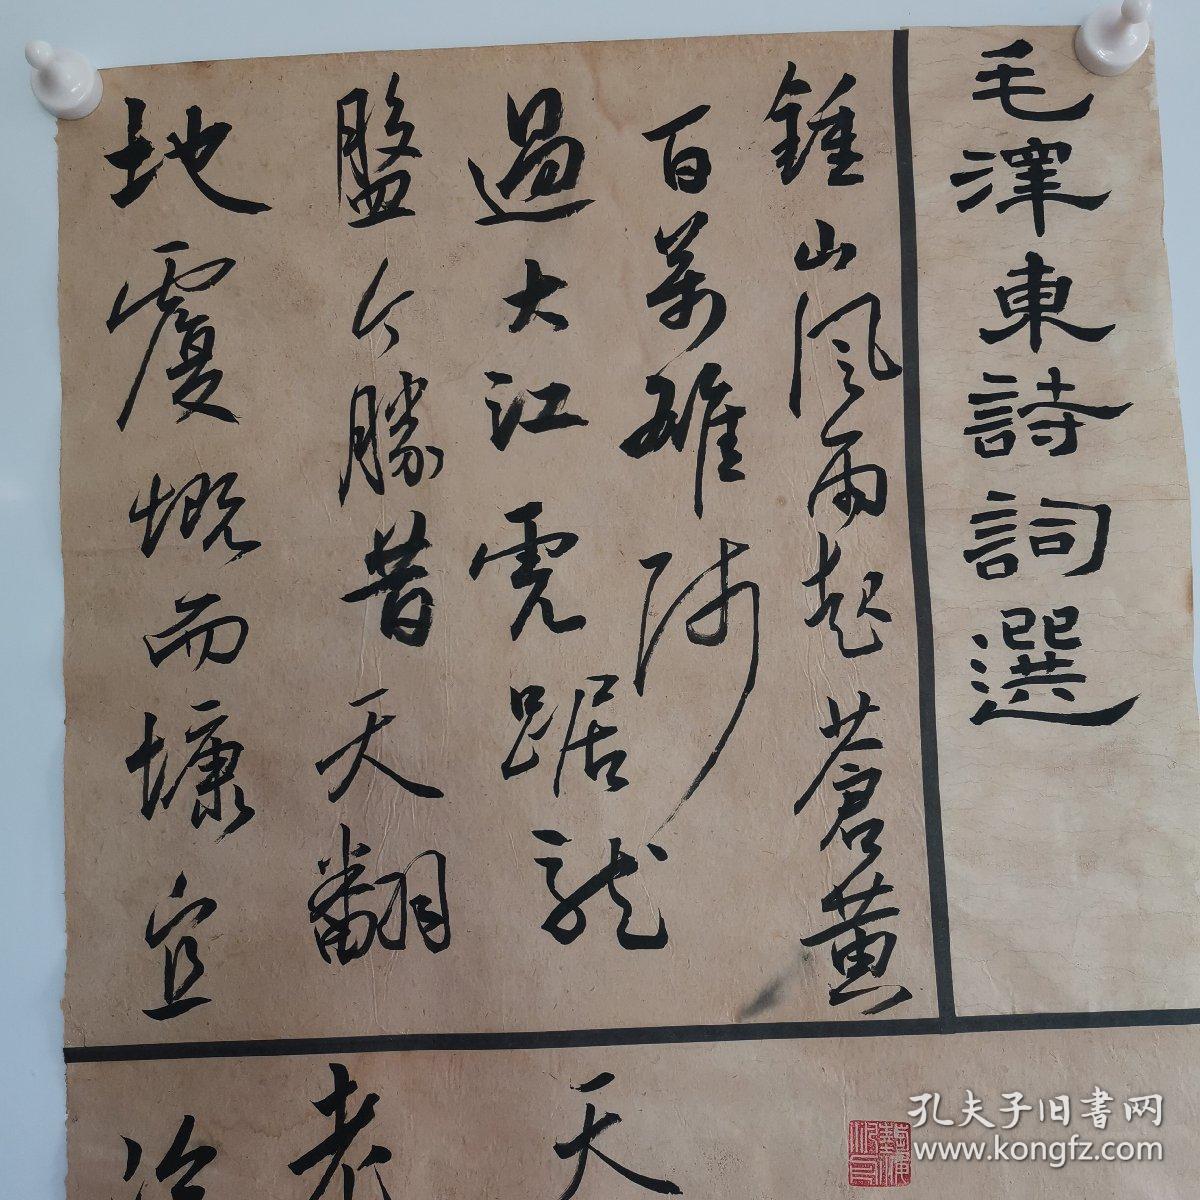 毛澤東詩詞選
鍾山風雨起蒼黃
百萬雄師
過大江虎踞龍
盤今勝昔天翻
地覆慨而慷宜
天
老
孔夫子旧書网
www.kongfz.com